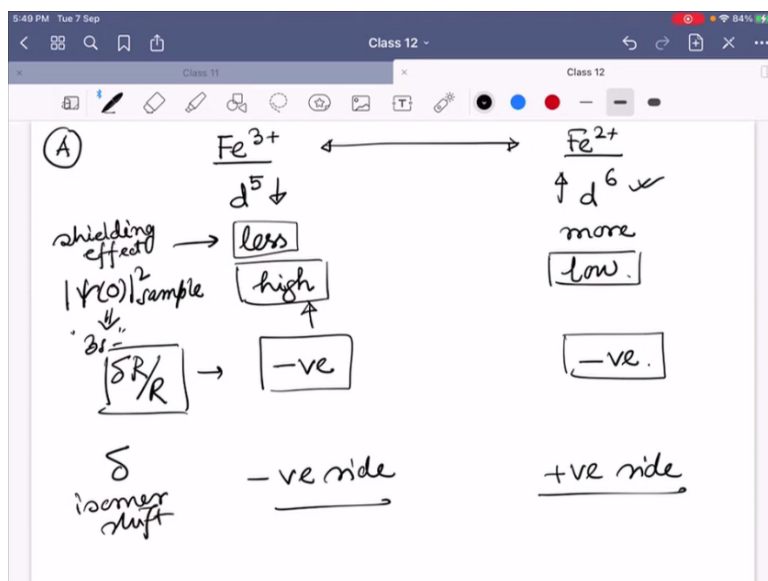 5:49 PM Tue 7 Sep
84%
Class 12
Class 11
Class 12
A
Fe³⁺ ⟷ Fe²⁺
d⁵ ↓ ↑ d⁶
shielding effect → less more
|ψ(0)|² sample high low.
"3s-"
δR/R → -ve -ve.
δ - ve side +ve side
isomer
shift